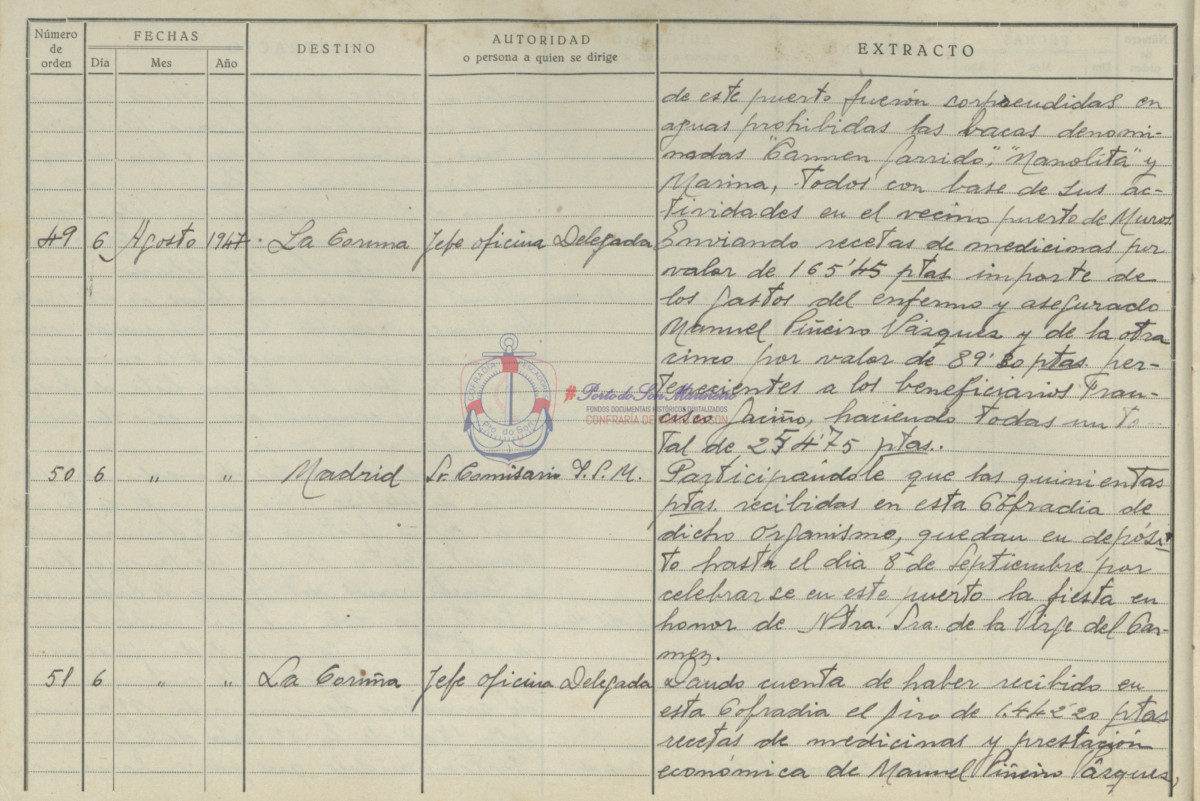 Número de orden
FECHAS
Día Mes Año
DESTINO
AUTORIDAD
o persona a quien se dirige
EXTRACTO
de este puerto fuerón sorprendidas en
aguas prohibidas las bacas denomi-
nadas "Carmen Garrido", "Manolita" y
Marina, todos con base de sus ac-
tividades en el vecino puerto de Muros.
49 6 Agosto 1947. La Coruna Jefe oficina Delegada Enviando recetas de medicinas por
valor de 165'45 ptas importe de
los gastos del enfermo y asegurado
Manuel Piñeiro Vázquez y de la otra
cinco por valor de 89'30 ptas. per-
tenecientes a los beneficiarios Fran-
cisco Gaciño, haciendo todas un to-
tal de 254'75 ptas..
50 6 " " Madrid Sr. Comisario I.S.M. Participandole que las quinientas
ptas. recibidas en esta Cofradia de
dicho organismo, quedan en depósi-
to hasta el dia 8 de Septiembre por
celebrarse en este puerto la fiesta en
honor de Ntra. Sra. de la Virge del Car-
men.
51 6 " " La Coruña Jefe oficina Delegada Dando cuenta de haber recibido en
esta Cofradia el giro de 1.442'20 ptas
recetas de medicinas y prestación
económica de Manuel Piñeiro Vázquez,
COFRADÍA PESCADORES
Pto. do Son
#Porto do Son Mariñeiro
FONDOS DOCUMENTAIS HISTÓRICOS DIXITALIZADOS
CONFRARÍA DE PORTO DO SON